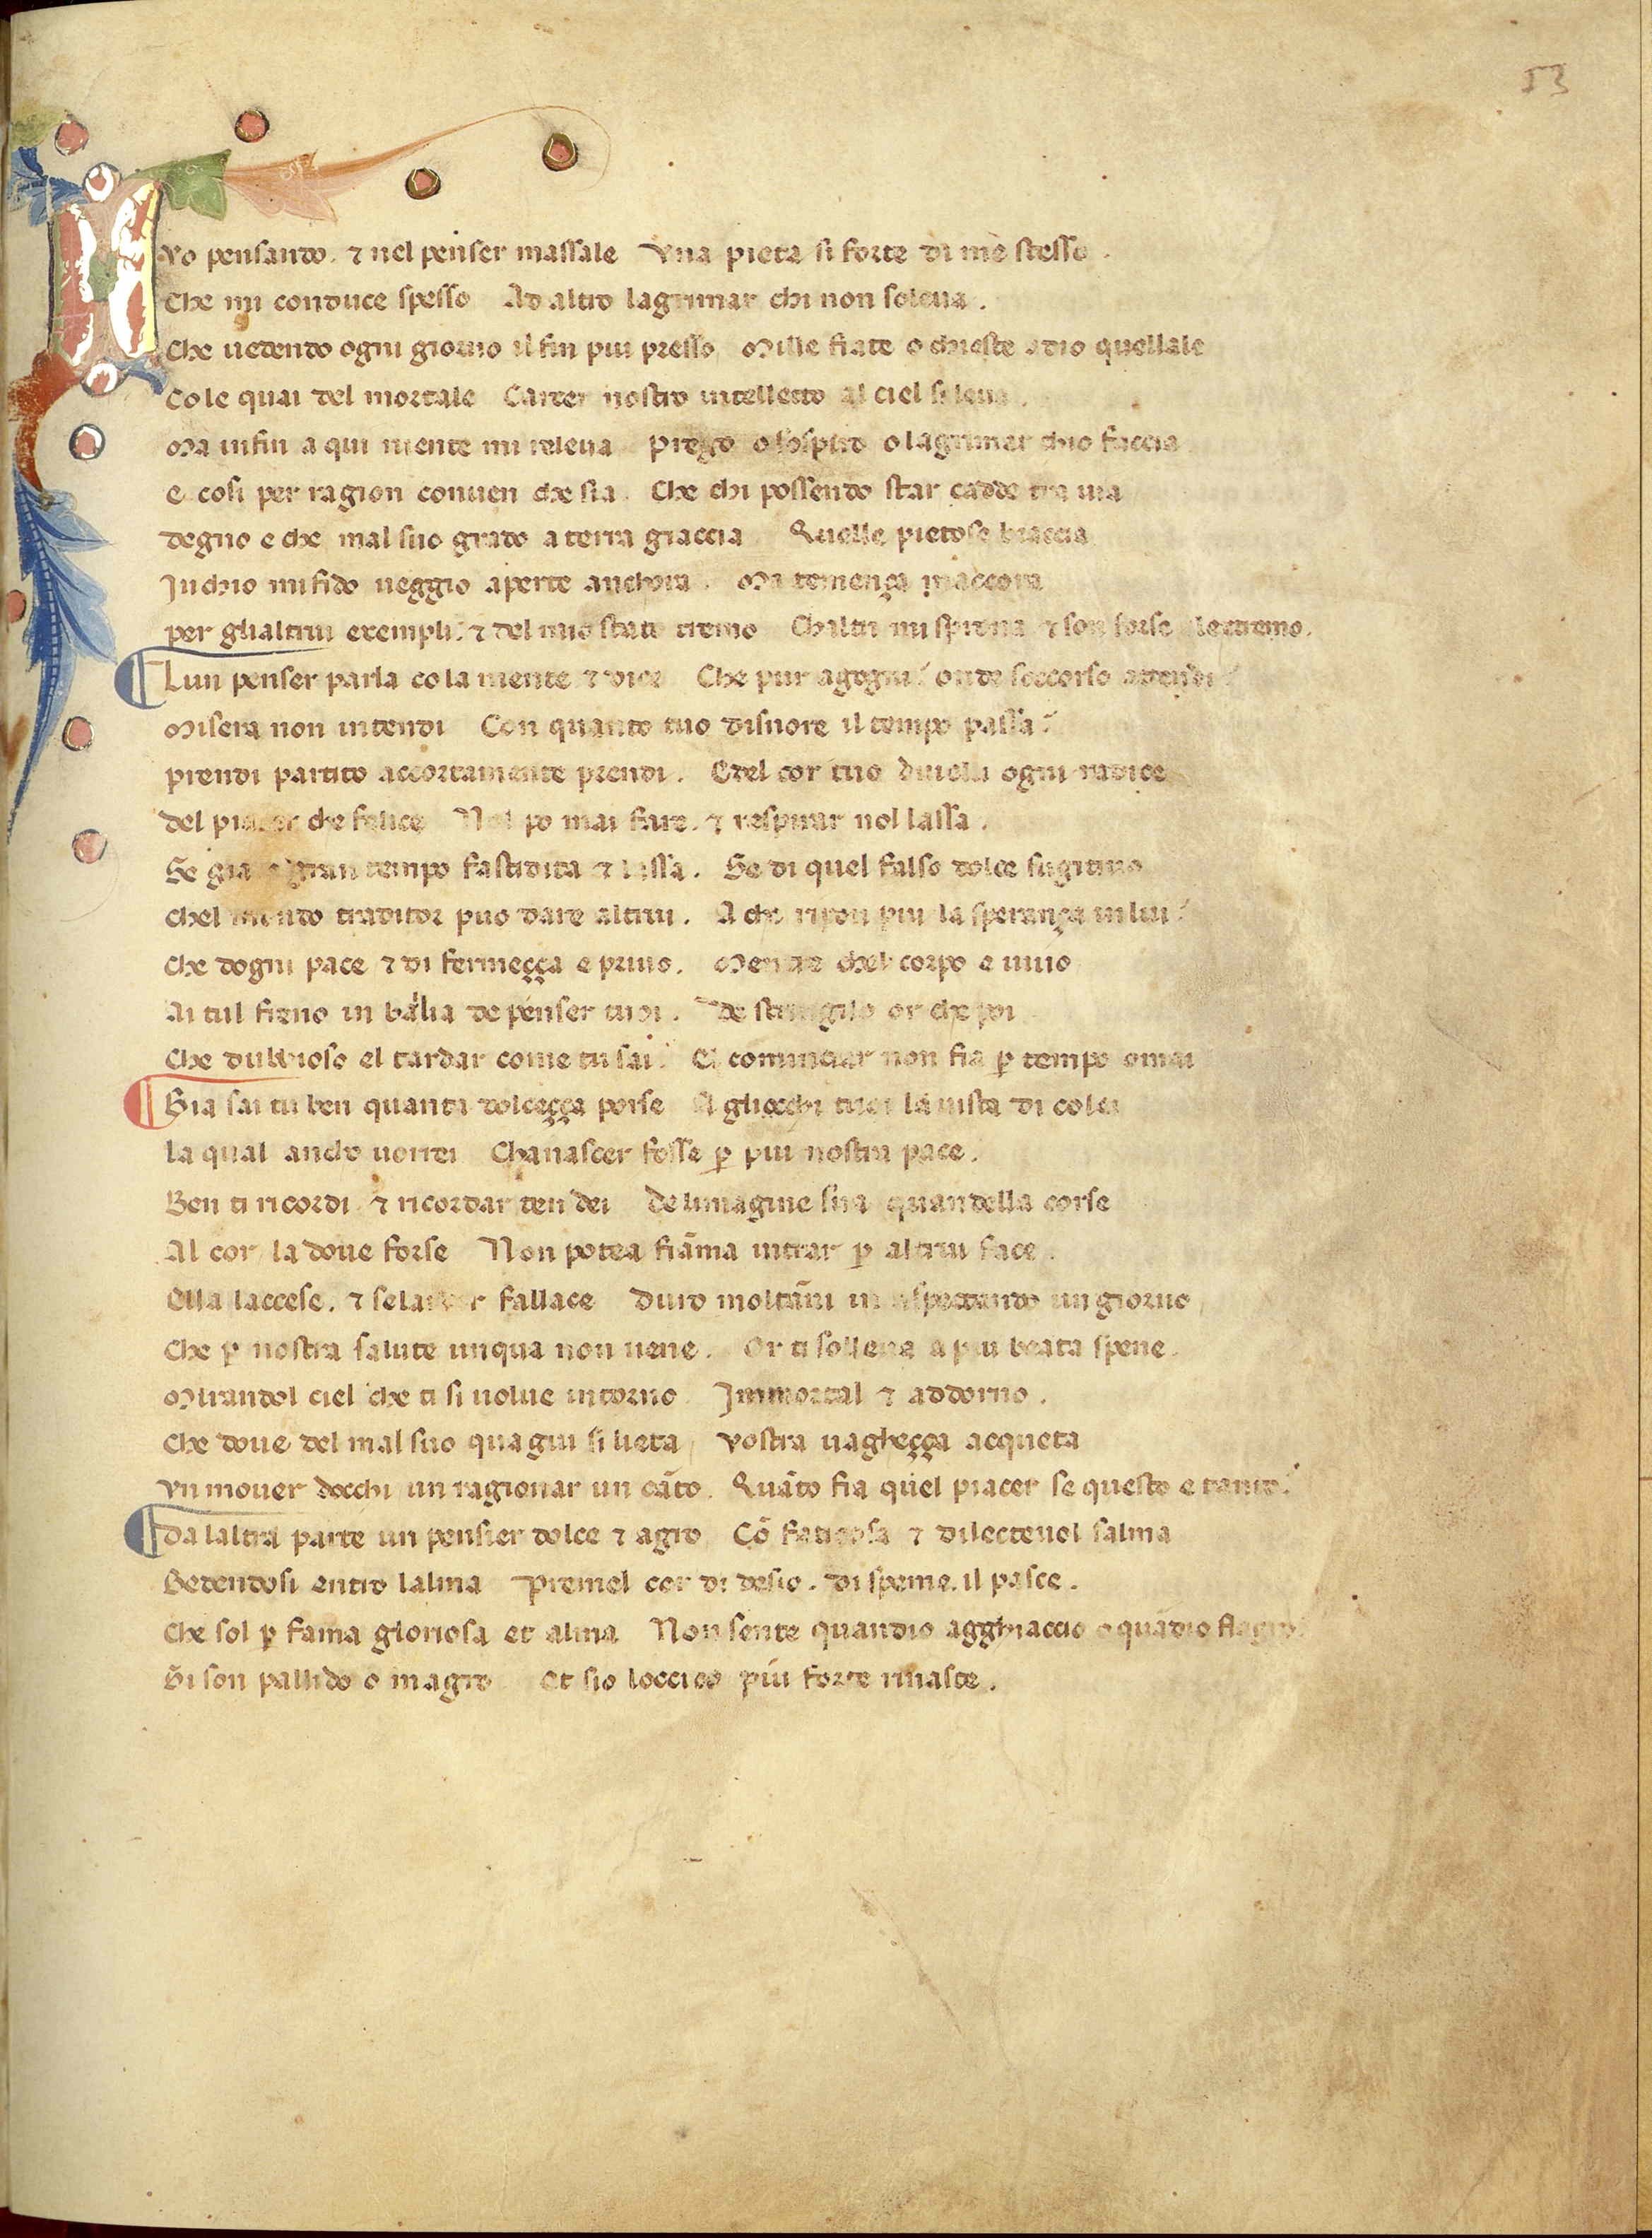 53
I vo pensando. ⁊ nel penser massale Vna pieta si forte di me stesso.
Che mi conduce spesso Ad altro lagrimar chi non soleua.
Che uedendo ogni giorno il fin piu presso Mille fiate o chieste a dio quellale
Co le quai del mortale Carcer nostro intelletto al ciel si leua.
Ma infin a qui niente mi releua Prego o sospiro o lagrimar chio faccia
e cosi per ragion conuen che sia. Che chi possendo star cadde tra uia
degno e che mal suo grado a terra giaccia Quelle pietose braccia
In chio mi fido ueggio aperte anchora. Ma temença maccora
per glialtrui exempli. ⁊ del mio stato tremo Chaltri mi sprona ⁊ son forse alextremo.
Lun penser parla co la mente ⁊ dice Che pur agogni? onde soccorso attendi?
Misera non intendi Con quanto tuo disnore il tempo passa?
prendi partito accortamente prendi. E del cor tuo diuelli ogni radice
del piacer che felice Nol po mai fare. ⁊ respirar nol lassa.
Se gia e gran tempo fastidita ⁊ lassa. Se di quel falso dolce fugitiuo
chel mondo traditor puo dare altrui. A che ripon piu la sperança in lui?
che dogni pace ⁊ di fermeçça e priuo. Mentre chel corpo e uiuo
Ai tul freno in balia de penser tuoi. De stringilo or che poi
Che dubbioso el tardar come tu sai. El cominciar non fia ꝑ tempo omai
Gia sai tu ben quanta dolceçça porse A gliocchi tuoi la uista di colei
la qual ancho uorrei Cha nascer fosse ꝑ piu nostra pace.
Ben ti ricordi ⁊ ricordar ten dei de limagine sua quandella corse
Al cor la doue forse Non potea fiãma intrar ꝑ altrui face.
Ella laccese. ⁊ se lardor fallace duro moltãni in aspectando un giorno
che ꝑ nostra salute unqua non uene. Or ti solleua a piu beata spene.
Mirandol ciel che ti si uolue intorno Immortal ⁊ addorno.
che doue del mal suo qua giu si lieta vostra uagheçça acqueta
Vn mouer docchi un ragionar un cãto. Quãto fia quel piacer se questo e tanto?
Da laltra parte un pensier dolce ⁊ agro Cõ faticosa ⁊ dilecteuol salma
Sedendosi entro lalma Premel cor di desio. di speme il pasce.
che sol ꝑ fama gloriosa et alma Non sente quandio agghiaccio o quãdio flagro.
Si son pallido o magro Et sio loccido piu forte rinasce.